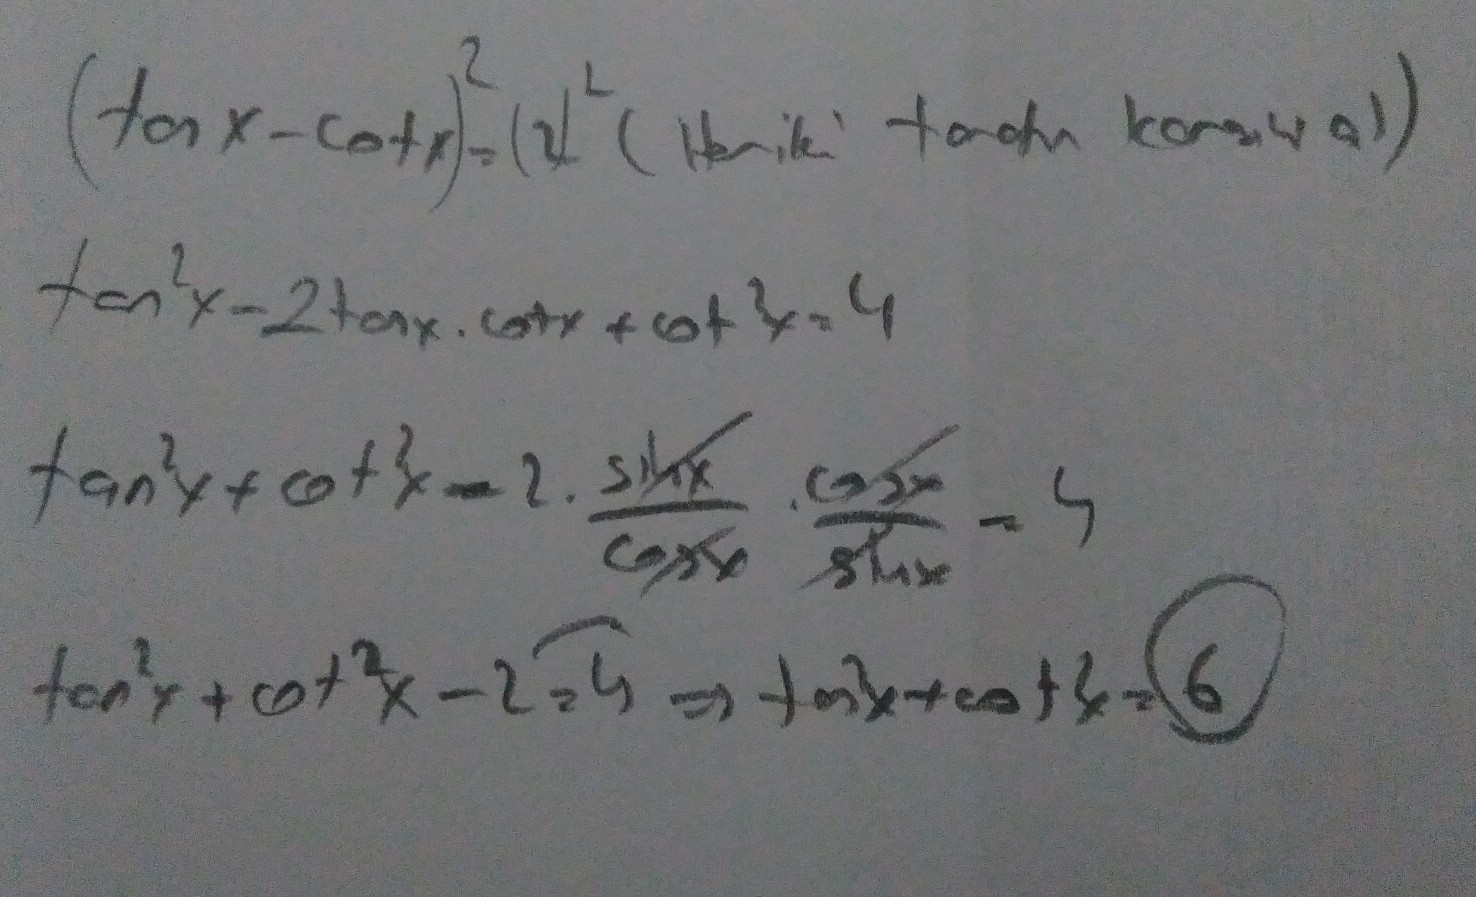 (tanx-cotx)²=(2)² (Her iki tarafın karesini al)
tan²x-2tanx.cotx+cot²x=4
tan²x+cot²x-2.sinx/cosx.cosx/sinx=4
tan²x+cot²x-2=4⇒tan²x+cot²x=6